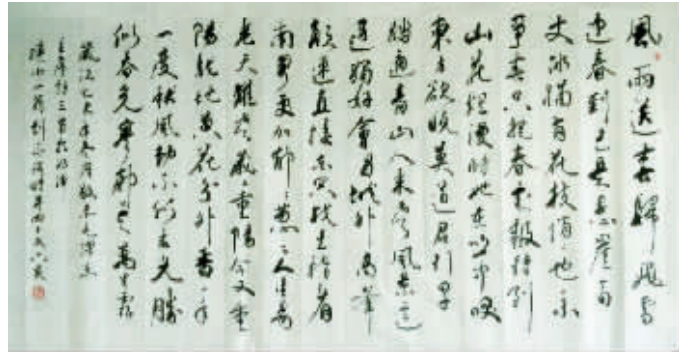 風雨送春歸飛雪
迎春到已是懸崖百
丈冰猶有花枝俏俏也不
爭春只把春來報待到
山花爛漫時她在叢中咲
東方欲曉莫道君行早
踏遍青山人未老風景這
邊獨好會昌城外高峰
顛連直接東溟戰士指看
南粵更加郁〻蔥〻人生易
老天難老歲〻重陽今又重
陽戰地黃花分外香一年
一度秋風勁不似春光勝
似春光寥廓江天萬里霜
歲次乙未年冬月敬錄毛澤東
主席詞三首於